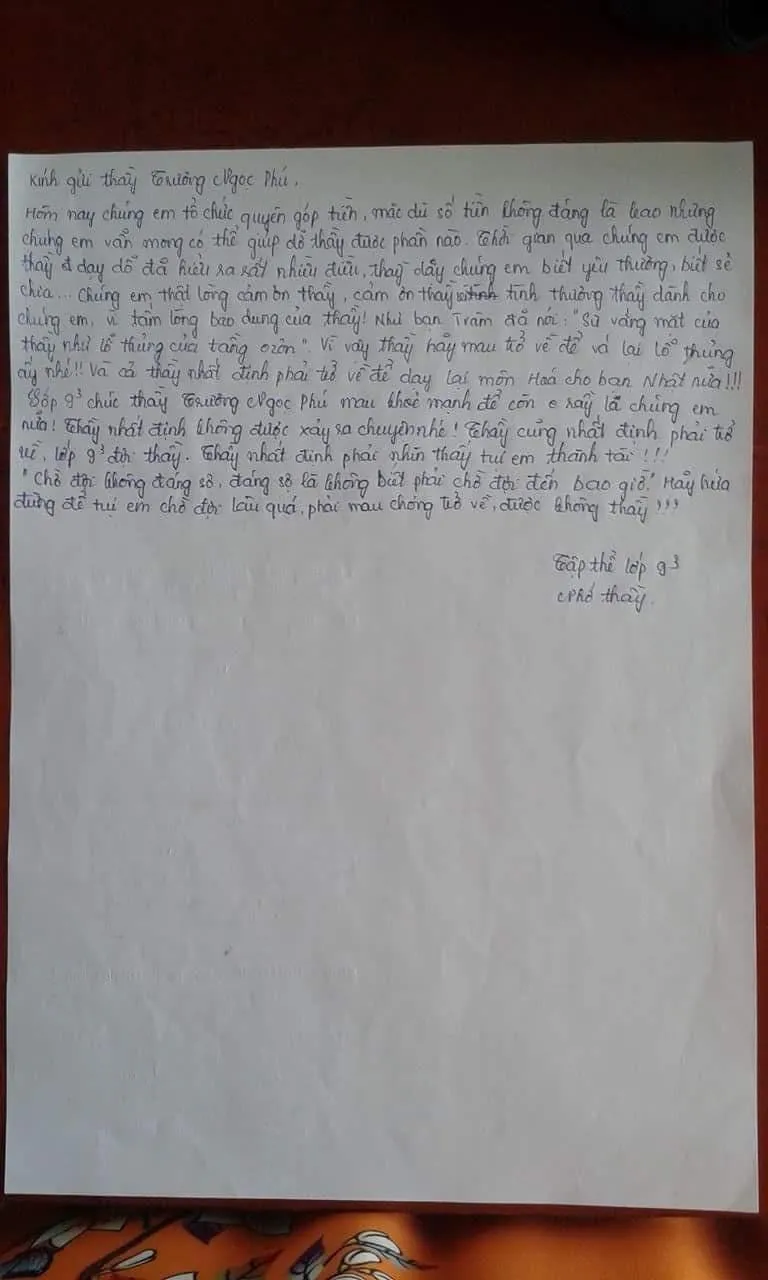 Kính gửi thầy Trương Ngọc Phú,
Hôm nay chúng em tổ chức quyên góp tiền, mặc dù số tiền không đáng là bao nhưng
chúng em vẫn mong có thể giúp đỡ thầy được phần nào. Thời gian qua chúng em được
thầy dạy dỗ đã hiểu ra rất nhiều điều, thầy dạy chúng em biết yêu thương, biết sẻ
chia... Chúng em thật lòng cảm ơn thầy, cảm ơn thầy tình thương thầy dành cho
chúng em, vì tấm lòng bao dung của thầy! Như bạn Trâm đã nói: "Sự vắng mặt của
thầy như lỗ thủng của tầng ozôn". Vì vậy thầy hãy mau trở về để vá lại lỗ thủng
ấy nhé!! Và cả thầy nhất định phải trở về để dạy lại môn Hoá cho bạn Nhất nữa!!!
Lớp 9³ chúc thầy Trương Ngọc Phú mau khoẻ mạnh để còn la chúng em
nữa! Thầy nhất định không được xảy ra chuyện nhé! Thầy cũng nhất định phải trở
về, lớp 9³ đợi thầy. Thầy nhất định phải nhìn thấy tụi em thành tài!!!
"Chờ đợi không đáng sợ, đáng sợ là không biết phải chờ đợi đến bao giờ." Hãy hứa
đừng để tụi em chờ đợi lâu quá, phải mau chóng trở về, được không thầy???
Tập thể lớp 9³
Nhớ thầy.